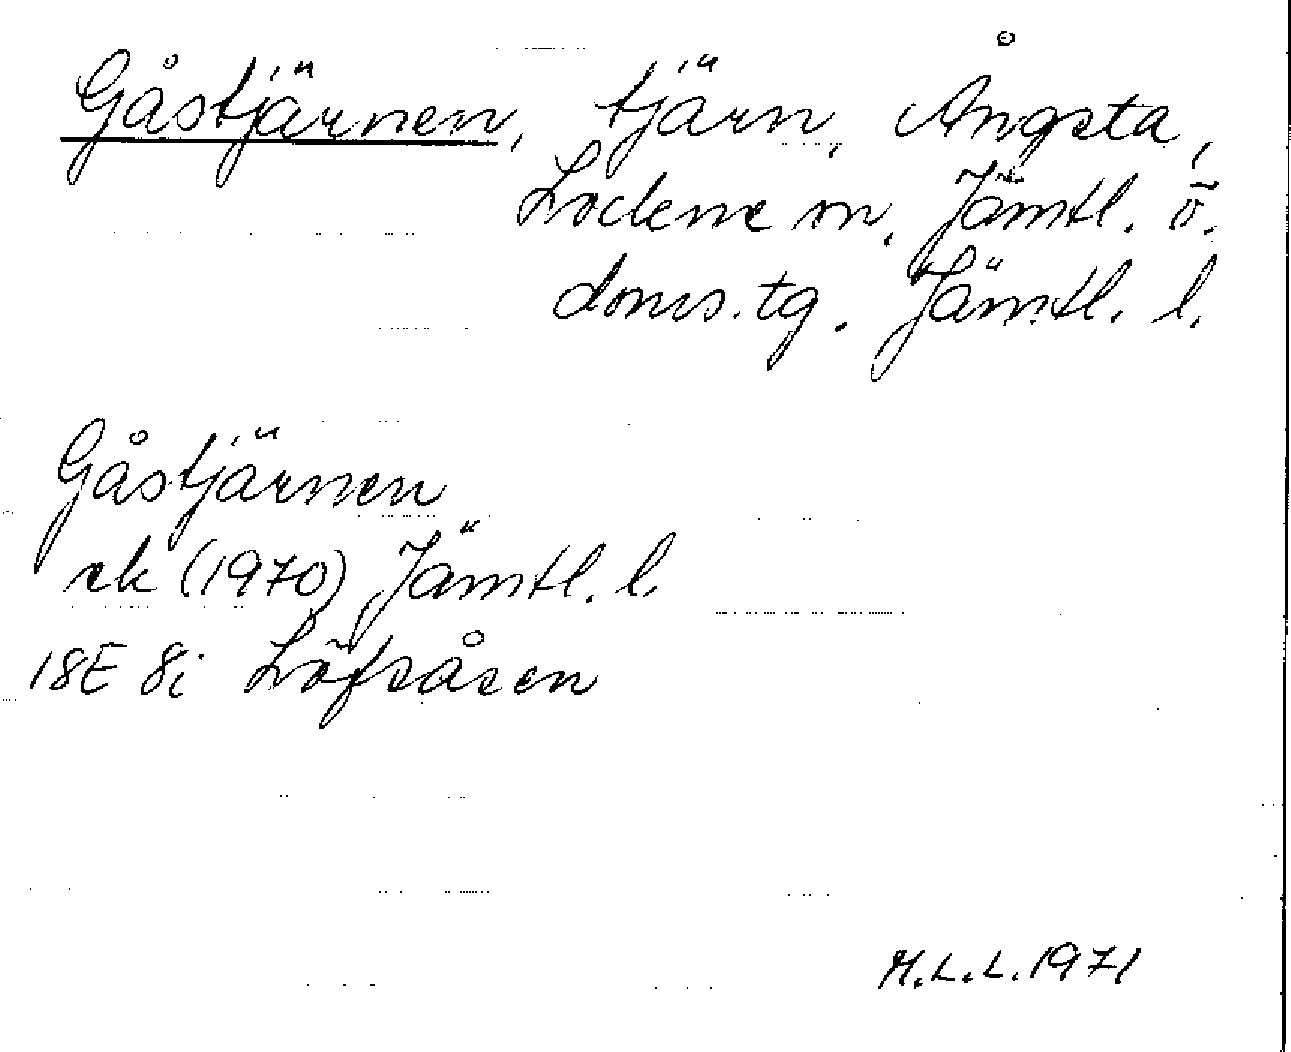 Gåstjärnen, tjärn, Ångsta,
Lockne sn, Jämtl. ö.
doms.tg. Jämtl. l.
Gåstjärnen
ek (1970) Jämtl. l.
18E 8i Löfsåsen
M.L.L. 1971